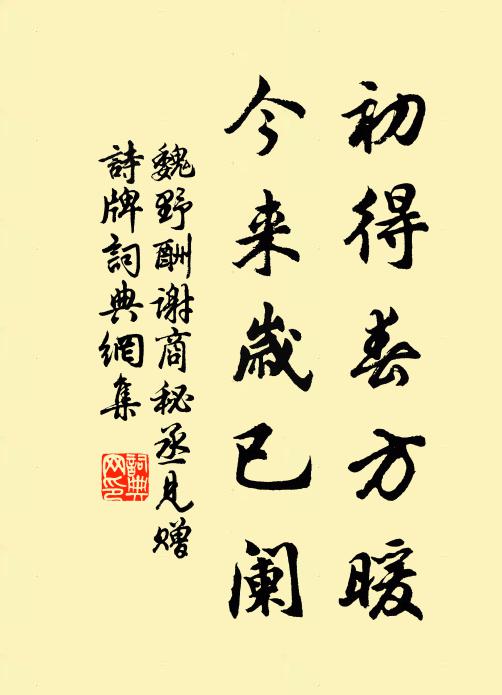 初得春方暖
今来岁已阑
魏野酬谢商秘丞见赠
詩牌詞典網集
詞典网印